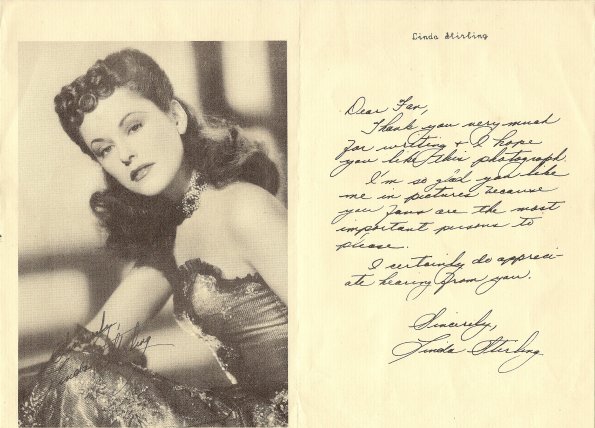 Linda Stirling
Dear Fan,
Thank you very much
for writing & I hope
you like this photograph.
I'm so glad you like
me in pictures because
you fans are the most
important persons to
please.
I certainly do appreci-
ate hearing from you.
Sincerely,
Linda Stirling
Sincerely,
Linda Stirling